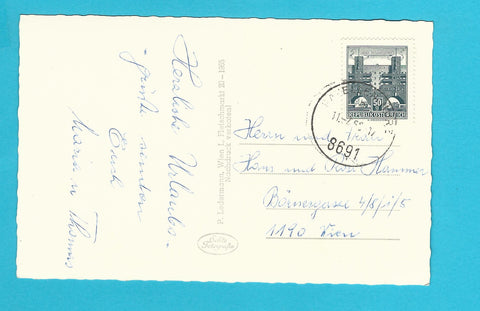 Herzliche Urlaubs-
grüße senden
Euch
Maria u. Thomas
P. Ledermann, Wien I, Fleischmarkt 20 — 1965
Nachdruck verboten!
Echte
Fotografie
50
REPUBLIK ÖSTERREICH
8691
Herrn und Frau
Hans und
Hammer
Börnergasse 4/8/1/5
1190 Wien